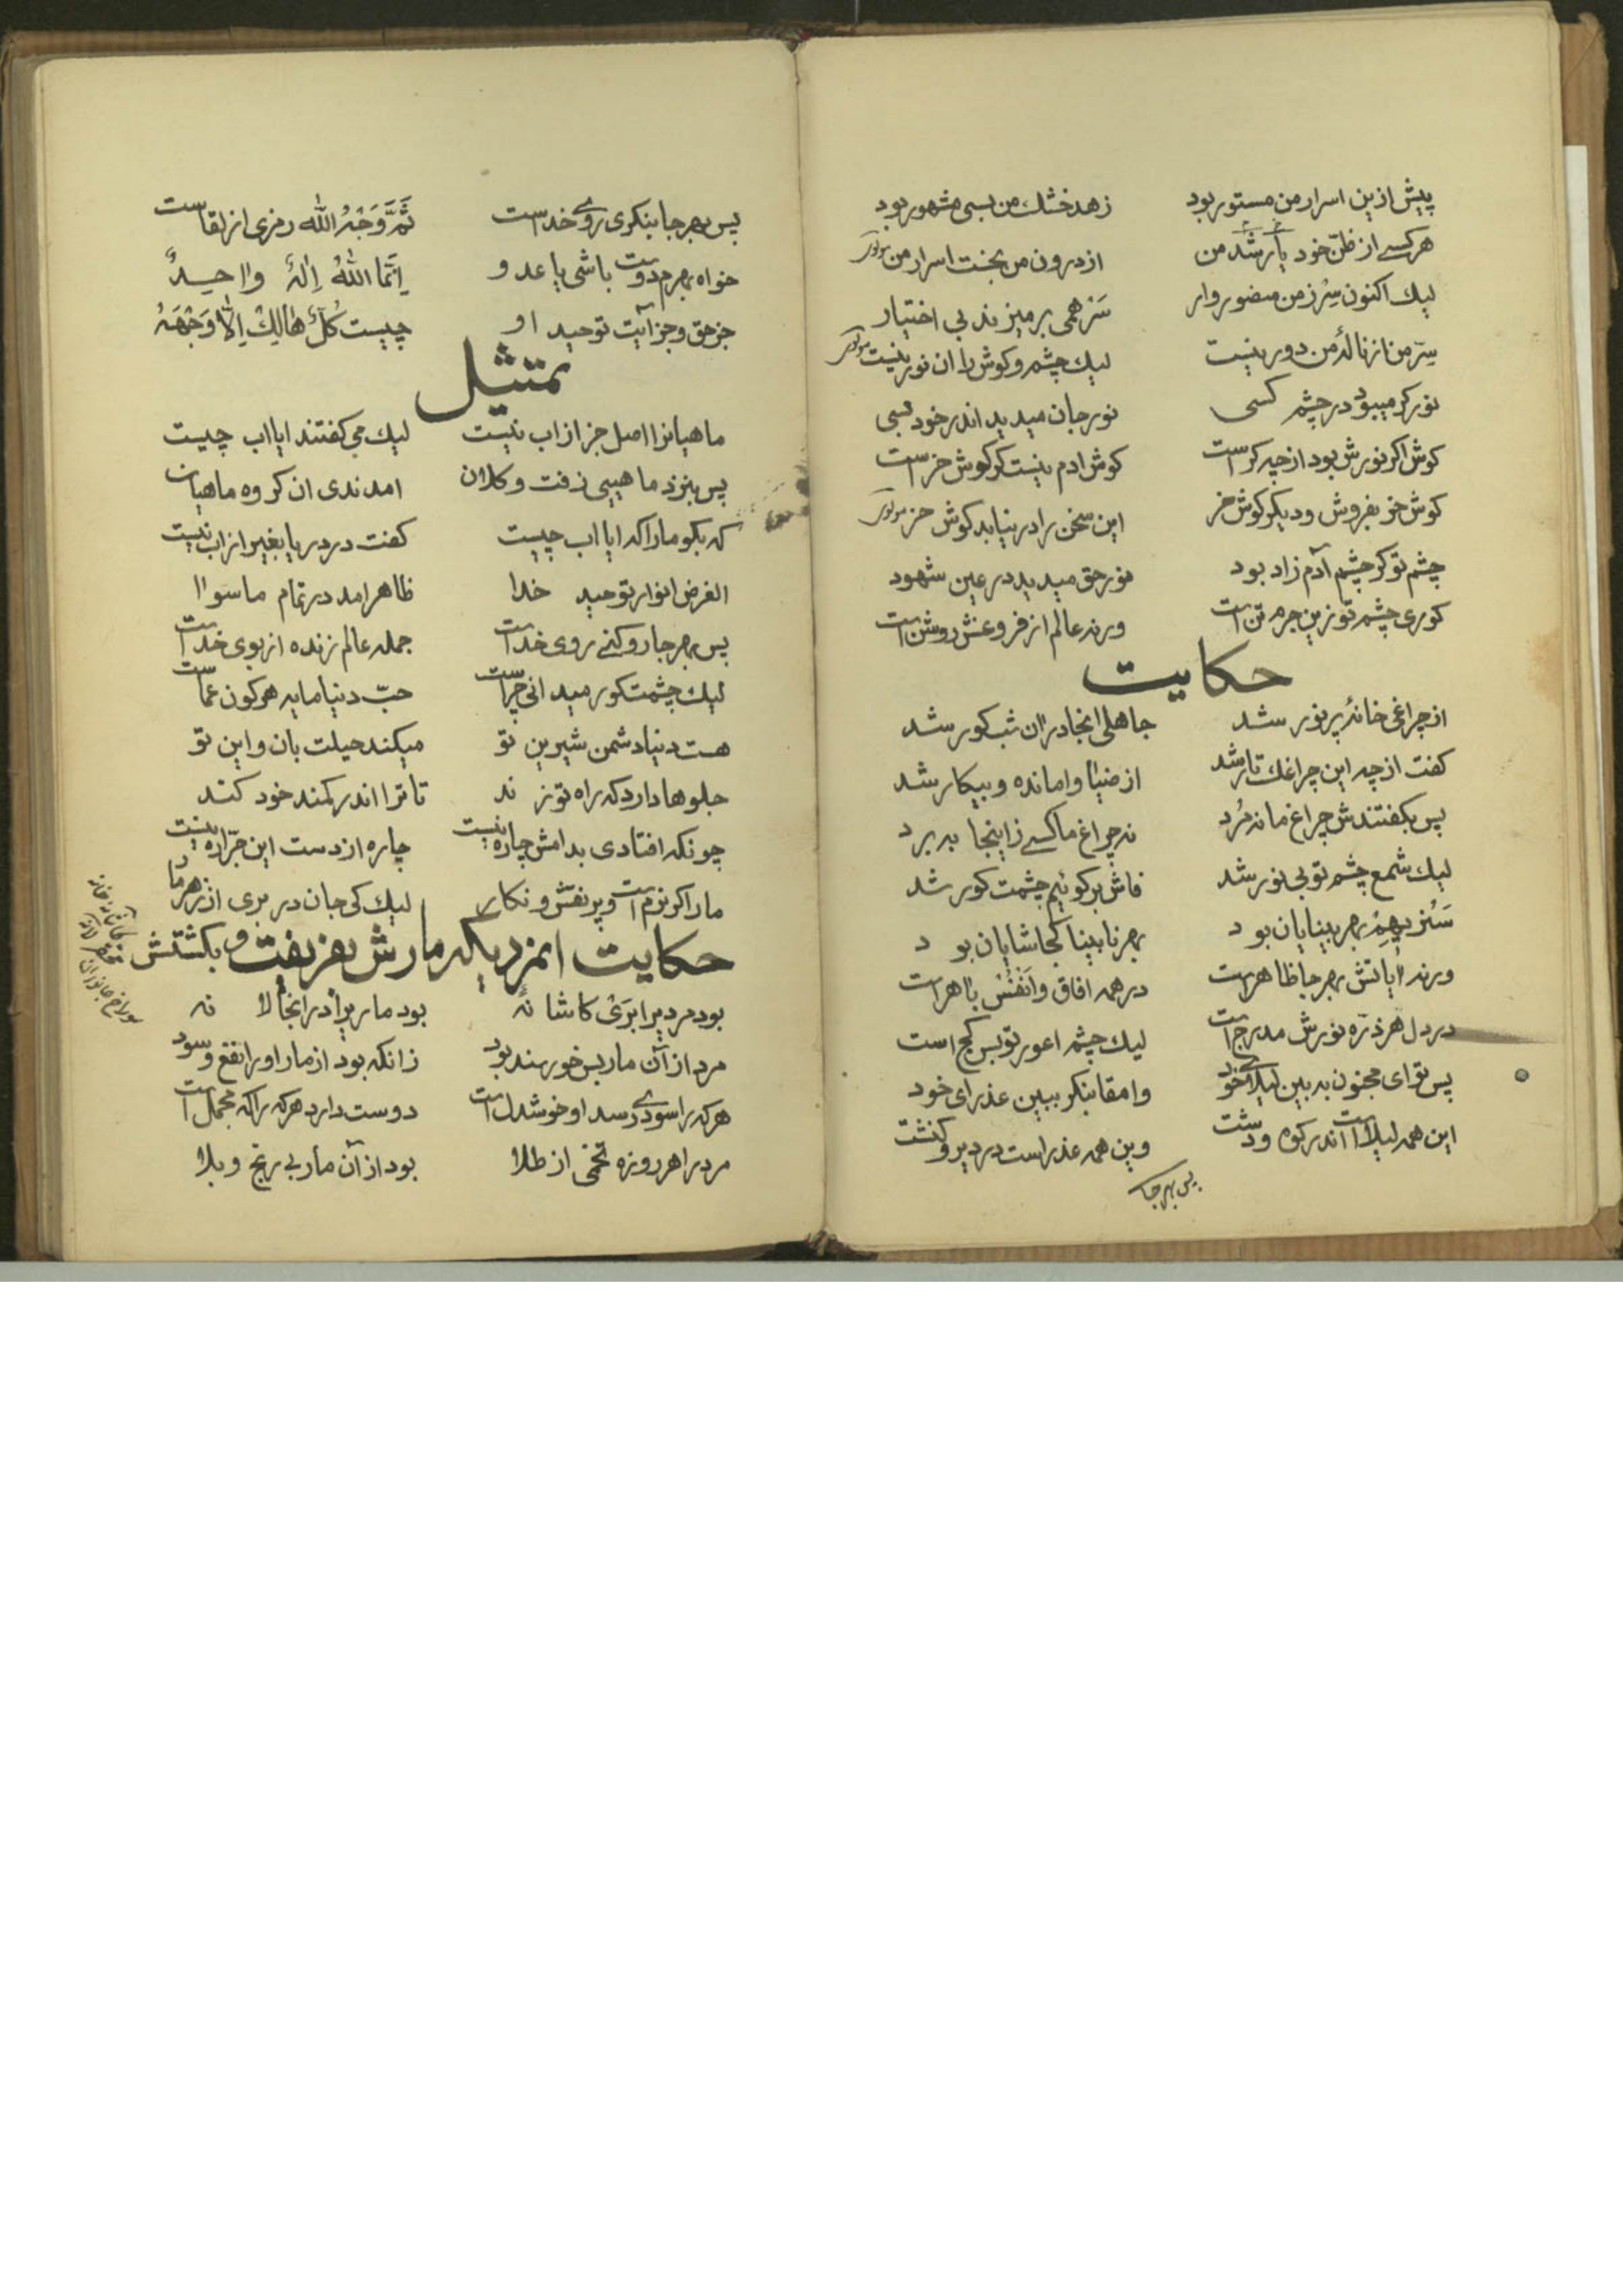 پیش ازین اسرار من مستور بود زهد خشك من بسی مشهور بود
هر کسے از ظنّ خود یار شد من از درون من بجست اسرار من
لیك اکنون سِرّ من منصور وار سَر همی بر میزند بی اختیار
سِرّ من از نالهٔ من دور نیست لیك چشم و کوش را ان نور نیست
نور کر میبود در چشم کسی نور جان میدید اندر خود بسی
کوش اکر نورش بود از چه کرست کوش ادم نیست کر کوش خرست
کوش خر بفروش و دیکر کوش خر این سخن را در نیابد کوش خر
چشم تو کر چشم آدم زاد بود نور حق میدید در عین شهود
کوری چشم تو زین جرم تن است ورنه عالم از فروغش روشن است
حکایت
از چراغی خانهٔ پر نور شد جاهلی انجا در ان شب کور شد
کفت از چه این چراغك تار شد از ضیا وامانده و بیکار شد
پس بکفتندش چراغ ما نمرد نه چراغ ما کسے زاینجا ببرد
لیك شمع چشم تو بی نور شد فاش بر کوئیم چشمت کور شد
سَنُریهِمْ بهر بینایان بود بهر نابینا کجا شایان بود
ورنه آیاتش بهر جا ظاهر است در همه افاق و اَنفُسْ باهر است
در دل هر ذرّه نورش مدرج است لیك چشم اعور تو بس کج است
پس تو ای مجنون به بین لیلای خود وامقا بنکر ببین عذرای خود
این همه لیلا است اندر کوه و دشت وین همه عذر است در دیر و کنشت
پس بهر جا
پس بهر جا بنکری روے خداست ثَمَّ وَجْهُ الله رمزی از لقاست
خواه بهرم دوست باشی یا عدو اِنَّمَا اللهُ اِلٰهٌ واحِدٌ
جز حق و جز آیت توحید او چیست کُلٌّ هٰالِكْ اِلّا وَجْهَهُ
تمثیل
ماهیانرا اصل جز از اب نیست لیك می کفتند ایا اب چیست
پس بنزد ماهیی زفت و کلان امدندی ان کروه ماهیان
که بکو ما را که ایا اب چیست کفت در دریا بغیر از اب نیست
الغرض انوار توحید خدا ظاهر امد در تمام ما سوا
پس بهر جا رو کنے روی خداست جمله عالم زنده از بوی خداست
لیك چشمت کور میدانی چراست حبّ دنیا مایه هر کون عماست
هست دنیا دشمن شیرین تو میکند حیلت بان و این تو
جلوها دارد که راه تو زند تا ترا اندر کمند خود کند
چونکه افتادی بدامش چاره نیست چاره از دست این جرّاره نیست
مار اکر نرم است و پر نقش و نکار لیك کی جان در بری از زهر مار
حکایت انمرد یکه مارش بفریفت و بکشتش
بود مردیرا بَرَی کاشانهٔ بود مار یرا در انجا لانه
مرد از آن مار بس خورسند بود زانکه بود از مار او را نفع و سود
هر که را سودے رسد او خوشدل است دوست دارد هر که را که مجمل است
مرد را هر روزه تخمی از طلا بود از آن مار بی رنج و بلا